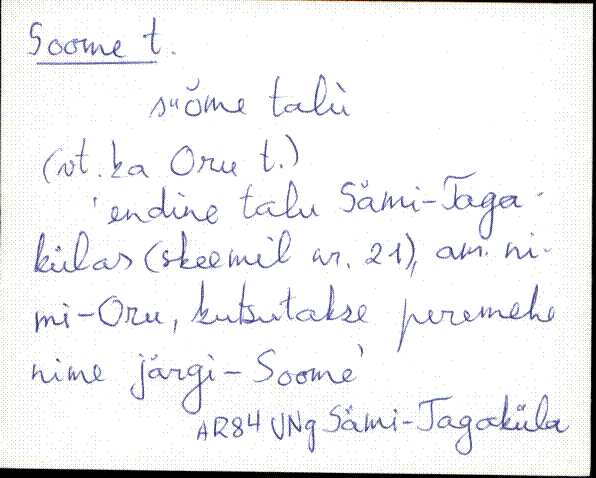 Soome t.
sᵘŏme talù
(vt. ka Oru t.)
'endine talu Sämi-Taga-
külas (skeemil nr. 21), am. ni-
mi-Oru, kutsutakse peremehe
nime järgi - Soome'
AR84 VNg Sämi-Tagaküla